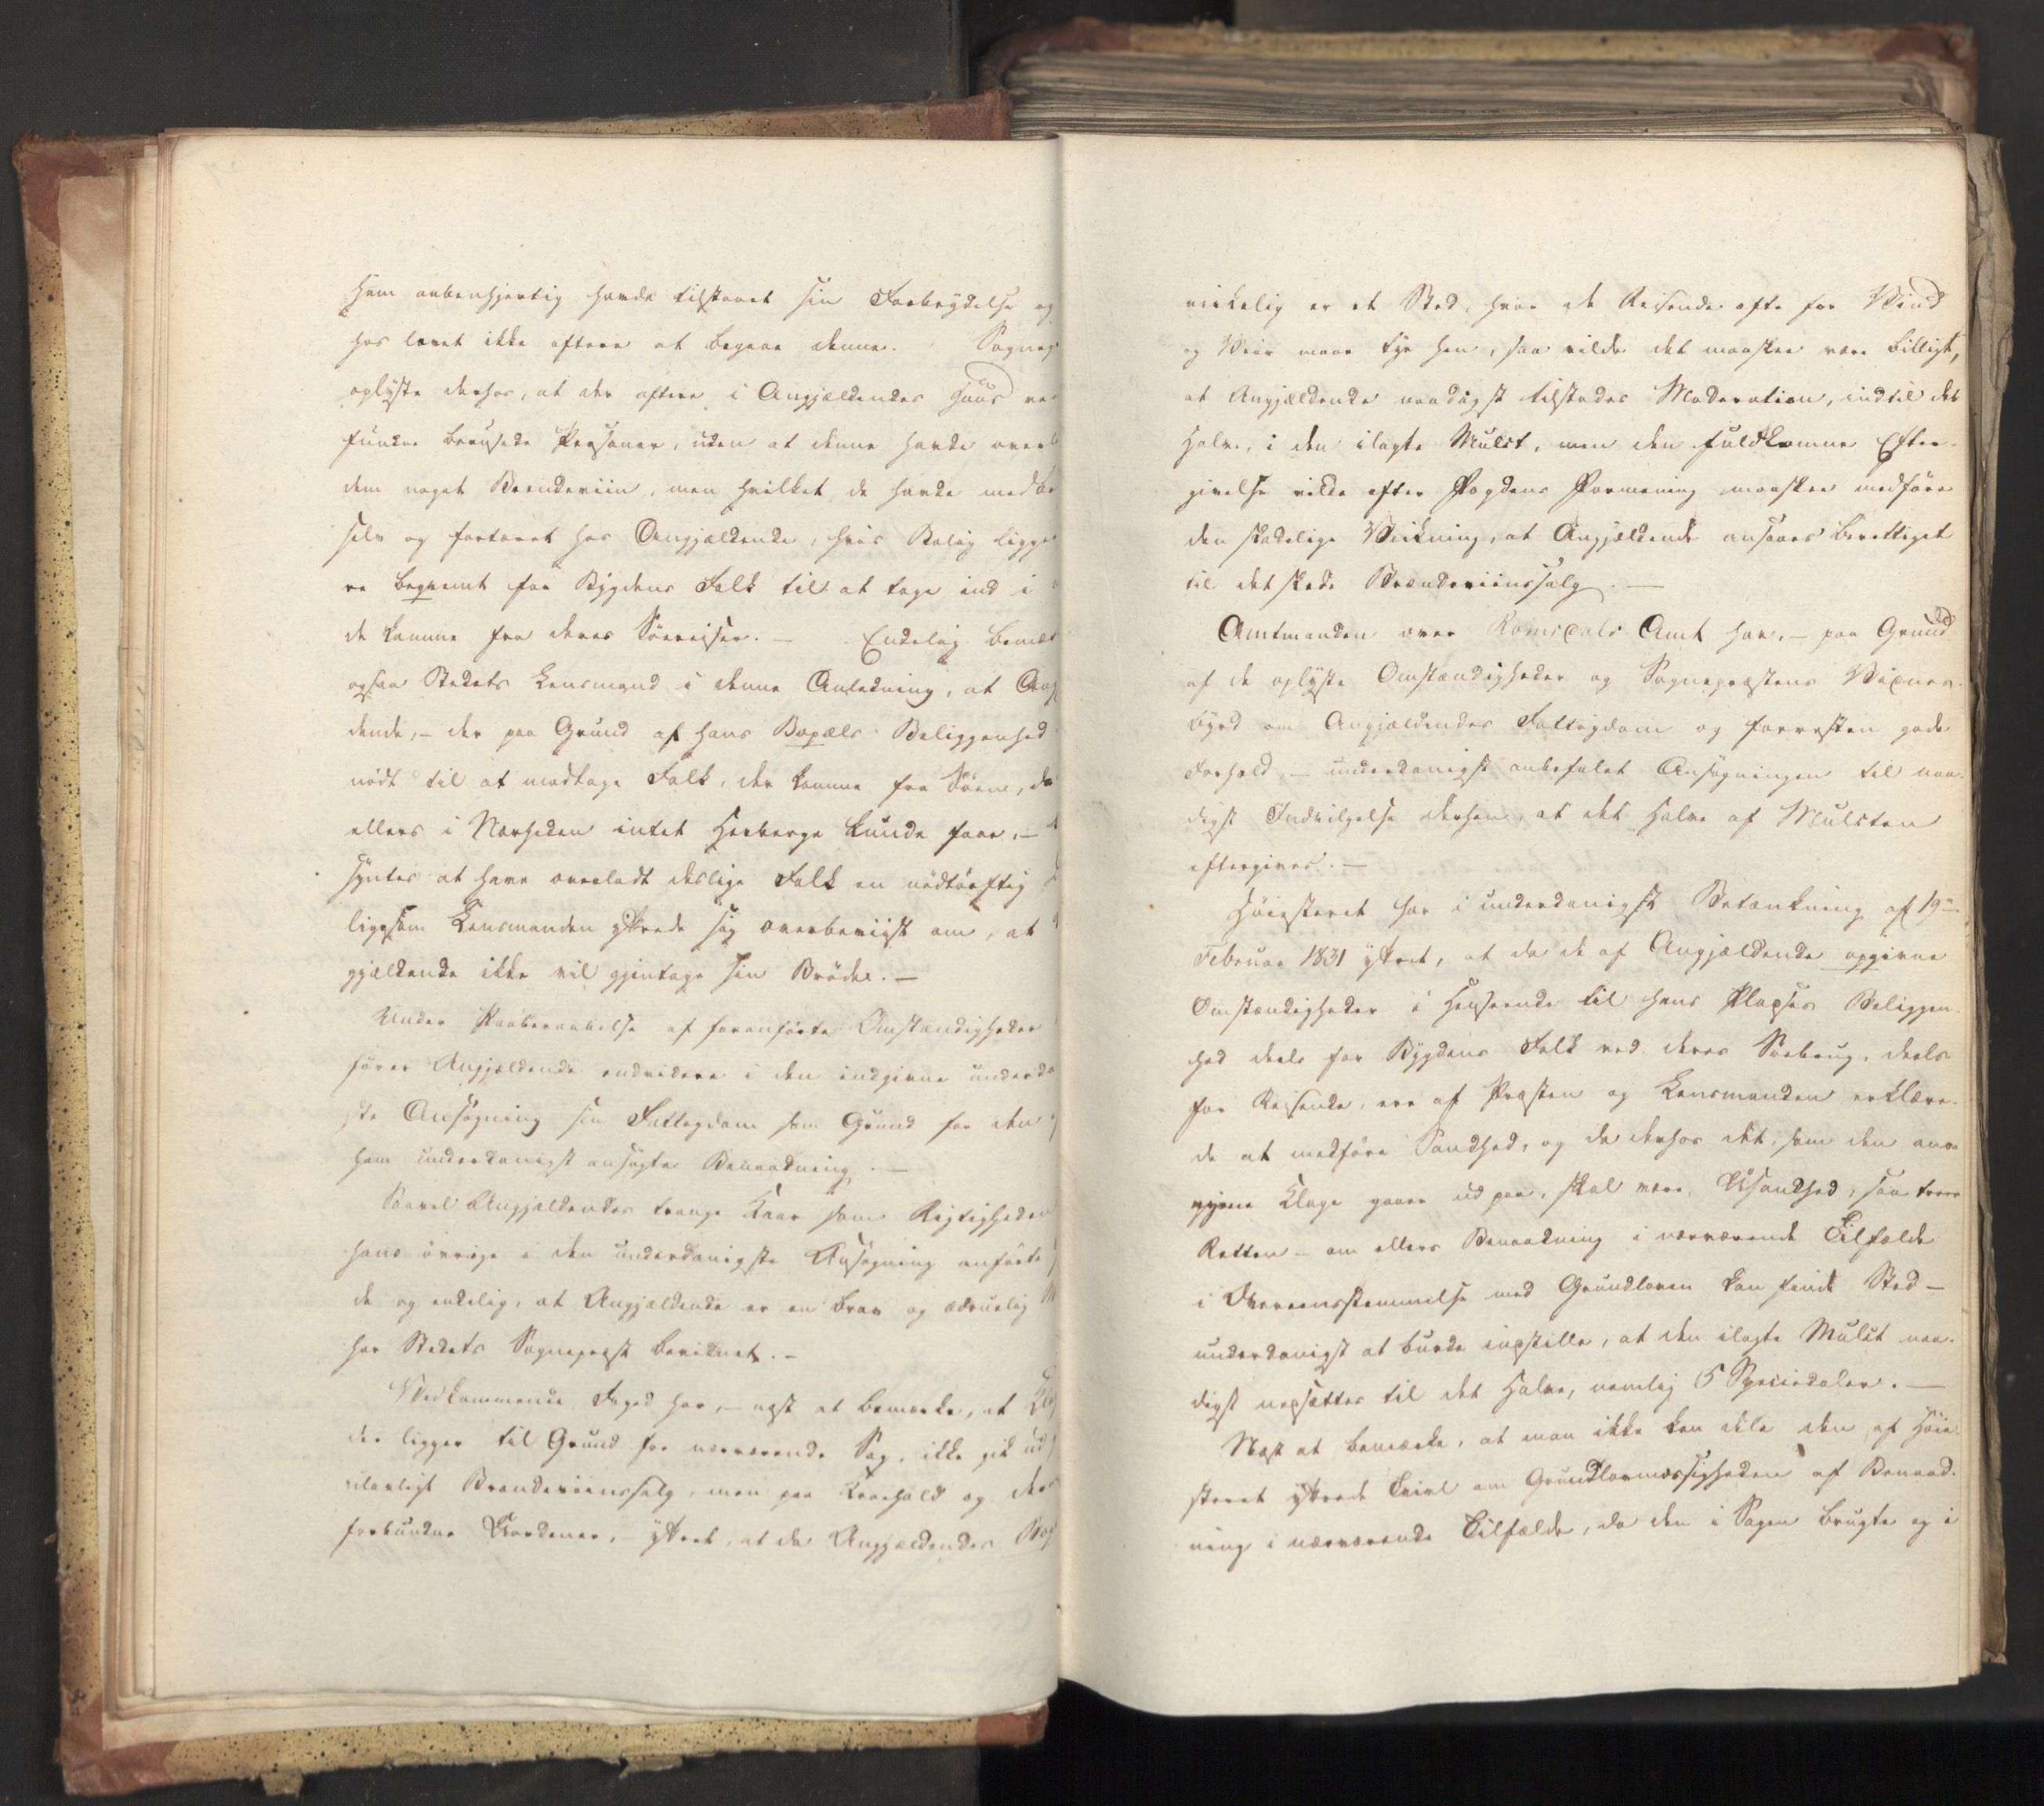 ham aabenhjertig havde tilstaaet sin Forbrydelse og
har lovet ikke oftere at begaae denne. Sognep
oplyste derhos, at der oftere i Angjældendes Huus va
fundne berusede Personer, uden at denne havde overl
dem noget Brændeviin, men hvilket de havde medbr
selv og fortæret hos Angjældende, hvis Bolig ligge
re beqvemt for Bygdens Folk til at tage ind i
de komme fra deres Söereiser. — Endelig bemær
ogsaa Stedets Lensmand i denne Anledning, at Ang
dende, – der paa Grund af hans Bopæls Beliggenhed
nödt til at modtage Folk, der komme fra Söen, da
ellers i Nærheden intet Herberge kunde faae, –
syntes at have overladt deslige Folk en nödtörftig
ligesom Lensmanden yttrede sig overbeviist om, at
gjældende ikke vil gjentage sin Bröde. —
Under Paaberaabelse af foranförte Omstændigheder
förer Angjældende endvidere i den indgivne underda
ste Ansögning sin Fattigdom som Grund for den
ham underdanigst ansögte Benaadning. —
Saavel Angjældendes trange Kaar som Rigtigheden
hans övrige i den underdanigste Ansögning anförte
de og endelig, at Angjældende er en brav og ædruelig M
har Stedets Sognepræst bevidnet. –
Vedkommende Foged har, – næst at bemærke, at Klag
der ligger til Grund for nærværende Sag, ikke gik ud
ulovligt Brændeviinssalg, men paa Kroehold og der
forbundne Uordener, – yttret, at da Angjældendes Bop
virkelig er et Sted, hvor de Reisende ofte for Vind
og Veir maae tye hen, saa vilde det maaskee være billigt,
at Angjældende naadigst tilstodes Moderation, indtil det
Halve, i den ilagte Mulct, men den fuldkomne Efter-
givelse vilde efter Fogdens Formening maaskee medföre
den skadelige Virkning, at Angjældende ansaaes berettiget
til det skede Brændeviinssalg. —
Amtmanden over Romsdals Amt har, – paa Grund
af de oplyste Omstændigheder og Sognepræstens Vidnes-
byrd om Angjældendes Fattigdom og forresten gode
Forhold, – underdanigst anbefalet Ansögningen til naa-
digst Indvilgelse derhen, at det Halve af Mulcten
eftergives. —
Höiesteret har i underdanigst Betænkning af 19de
Februar 1831 yttret, at da de af Angjældende opgivne
Omstændigheder i Henseende til hans Pladses Beliggen-
hed deels for Bygdens Folk ved deres Söebrug, deels
for Reisende, ere af Præsten og Lensmanden erklære-
de at medföre Sandhed, og da derhos det, som den ano-
nyme Klage gaaer ud paa, skal være Usandhed, saa troer
Retten – om ellers Benaadning i nærværende Tilfælde
i Overeensstemmelse med Grundloven kan finde Sted –
underdanigst at burde indstille, at den ilagte Mulct naa-
digst nedsættes til det Halve, nemlig 5 Speciedaler. —
Næst at bemærke, at man ikke kan dele den af Höie-
steret yttrede Tvivl om Grundlovmæssigheden af Benaad-
ning i nærværende Tilfælde, da den i Sagen brugte og i